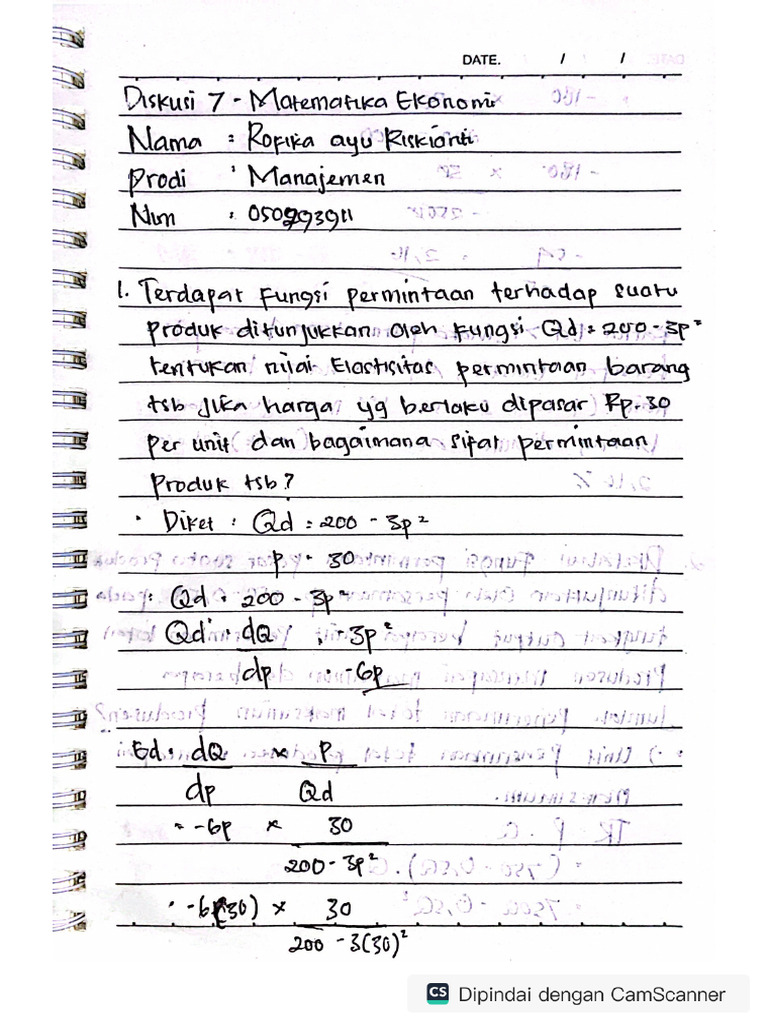 DATE. / /
Diskusi 7 - Matematika Ekonomi
Nama : Rofika ayu Riskianti
Prodi : Manajemen
Nim : 050293911
1. Terdapat Fungsi permintaan terhadap suatu
produk ditunjukkan oleh fungsi Qd = 200 - 3p²
tentukan nilai Elastisitas permintaan barang
tsb Jika harga yg berlaku dipasar Rp. 30
per unit dan bagaimana sifat permintaan
Produk tsb?
• Diket : Qd = 200 - 3p²
p = 30
• Qd = 200 - 3p²
Qd' = dQ = -3p²
dp = -6p
Ed = dQ × P
dp Qd
= -6p × 30
200 - 3p²
= -6(30) × 30
200 - 3(30)²
CS Dipindai dengan CamScanner